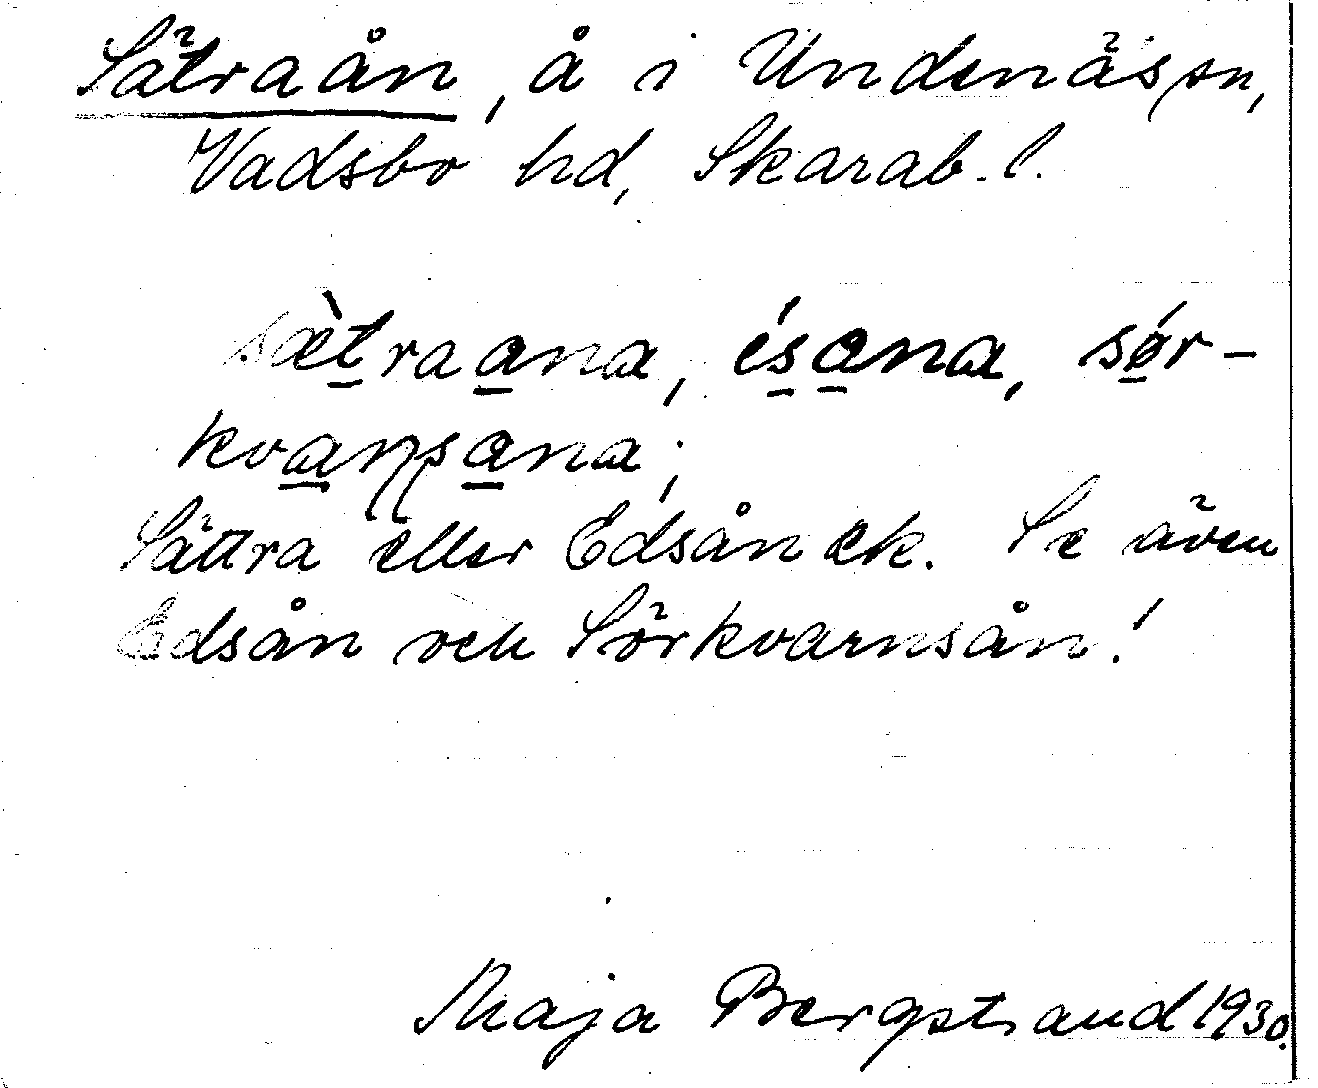 Sätraån, å i Undenäs sn,
Vadsbo hd, Skarab. l.
sæ̀t̠raa̠na, és̠a̠na, sǿ̠r-
kva̠ɳʂa̠na;
Sättra eller Edsån ek. Se även
Edsån och Sörkvarnsån!
Maja Bergstrand 1930.